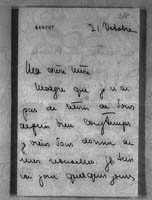 21 Octobre
Ma chère
Malgré que je n'ai
pas de de vous
depuis bien longtemps
je viens vous donner de
mes nouvelles. Je suis
ici pour quelques jours